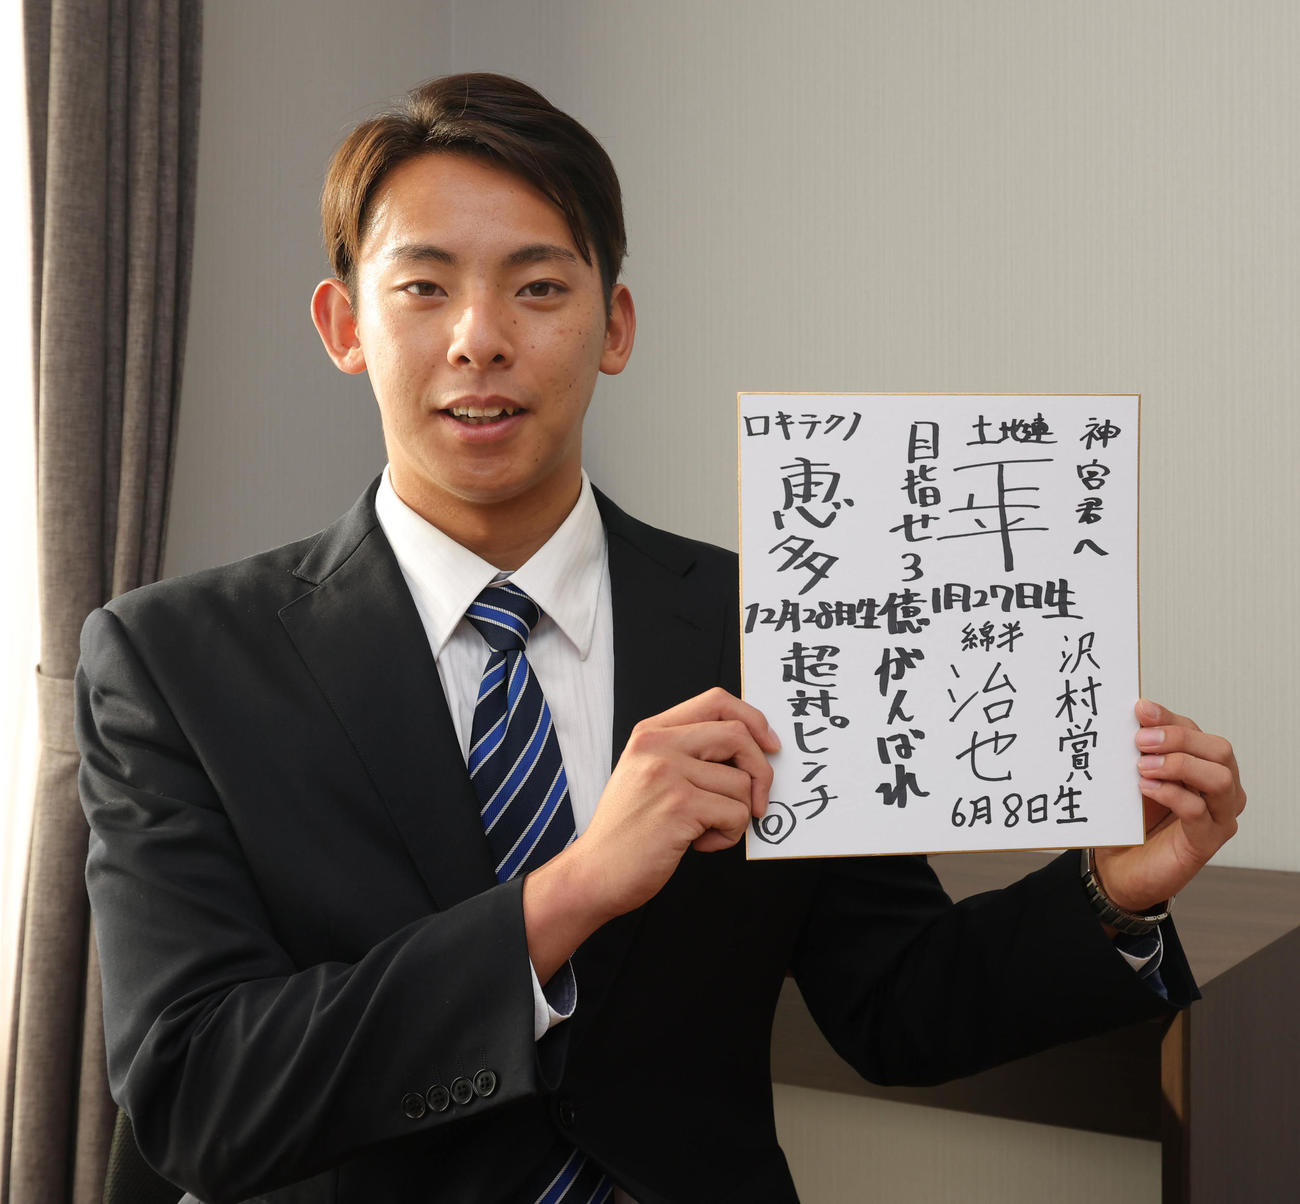 神宮君へ
沢村賞
土地連
平
1月27日生
綿半
治也
6月8日生
目指せ3億がんばれ
ロキテクノ
恵多
12月28日生
超対ピンチ